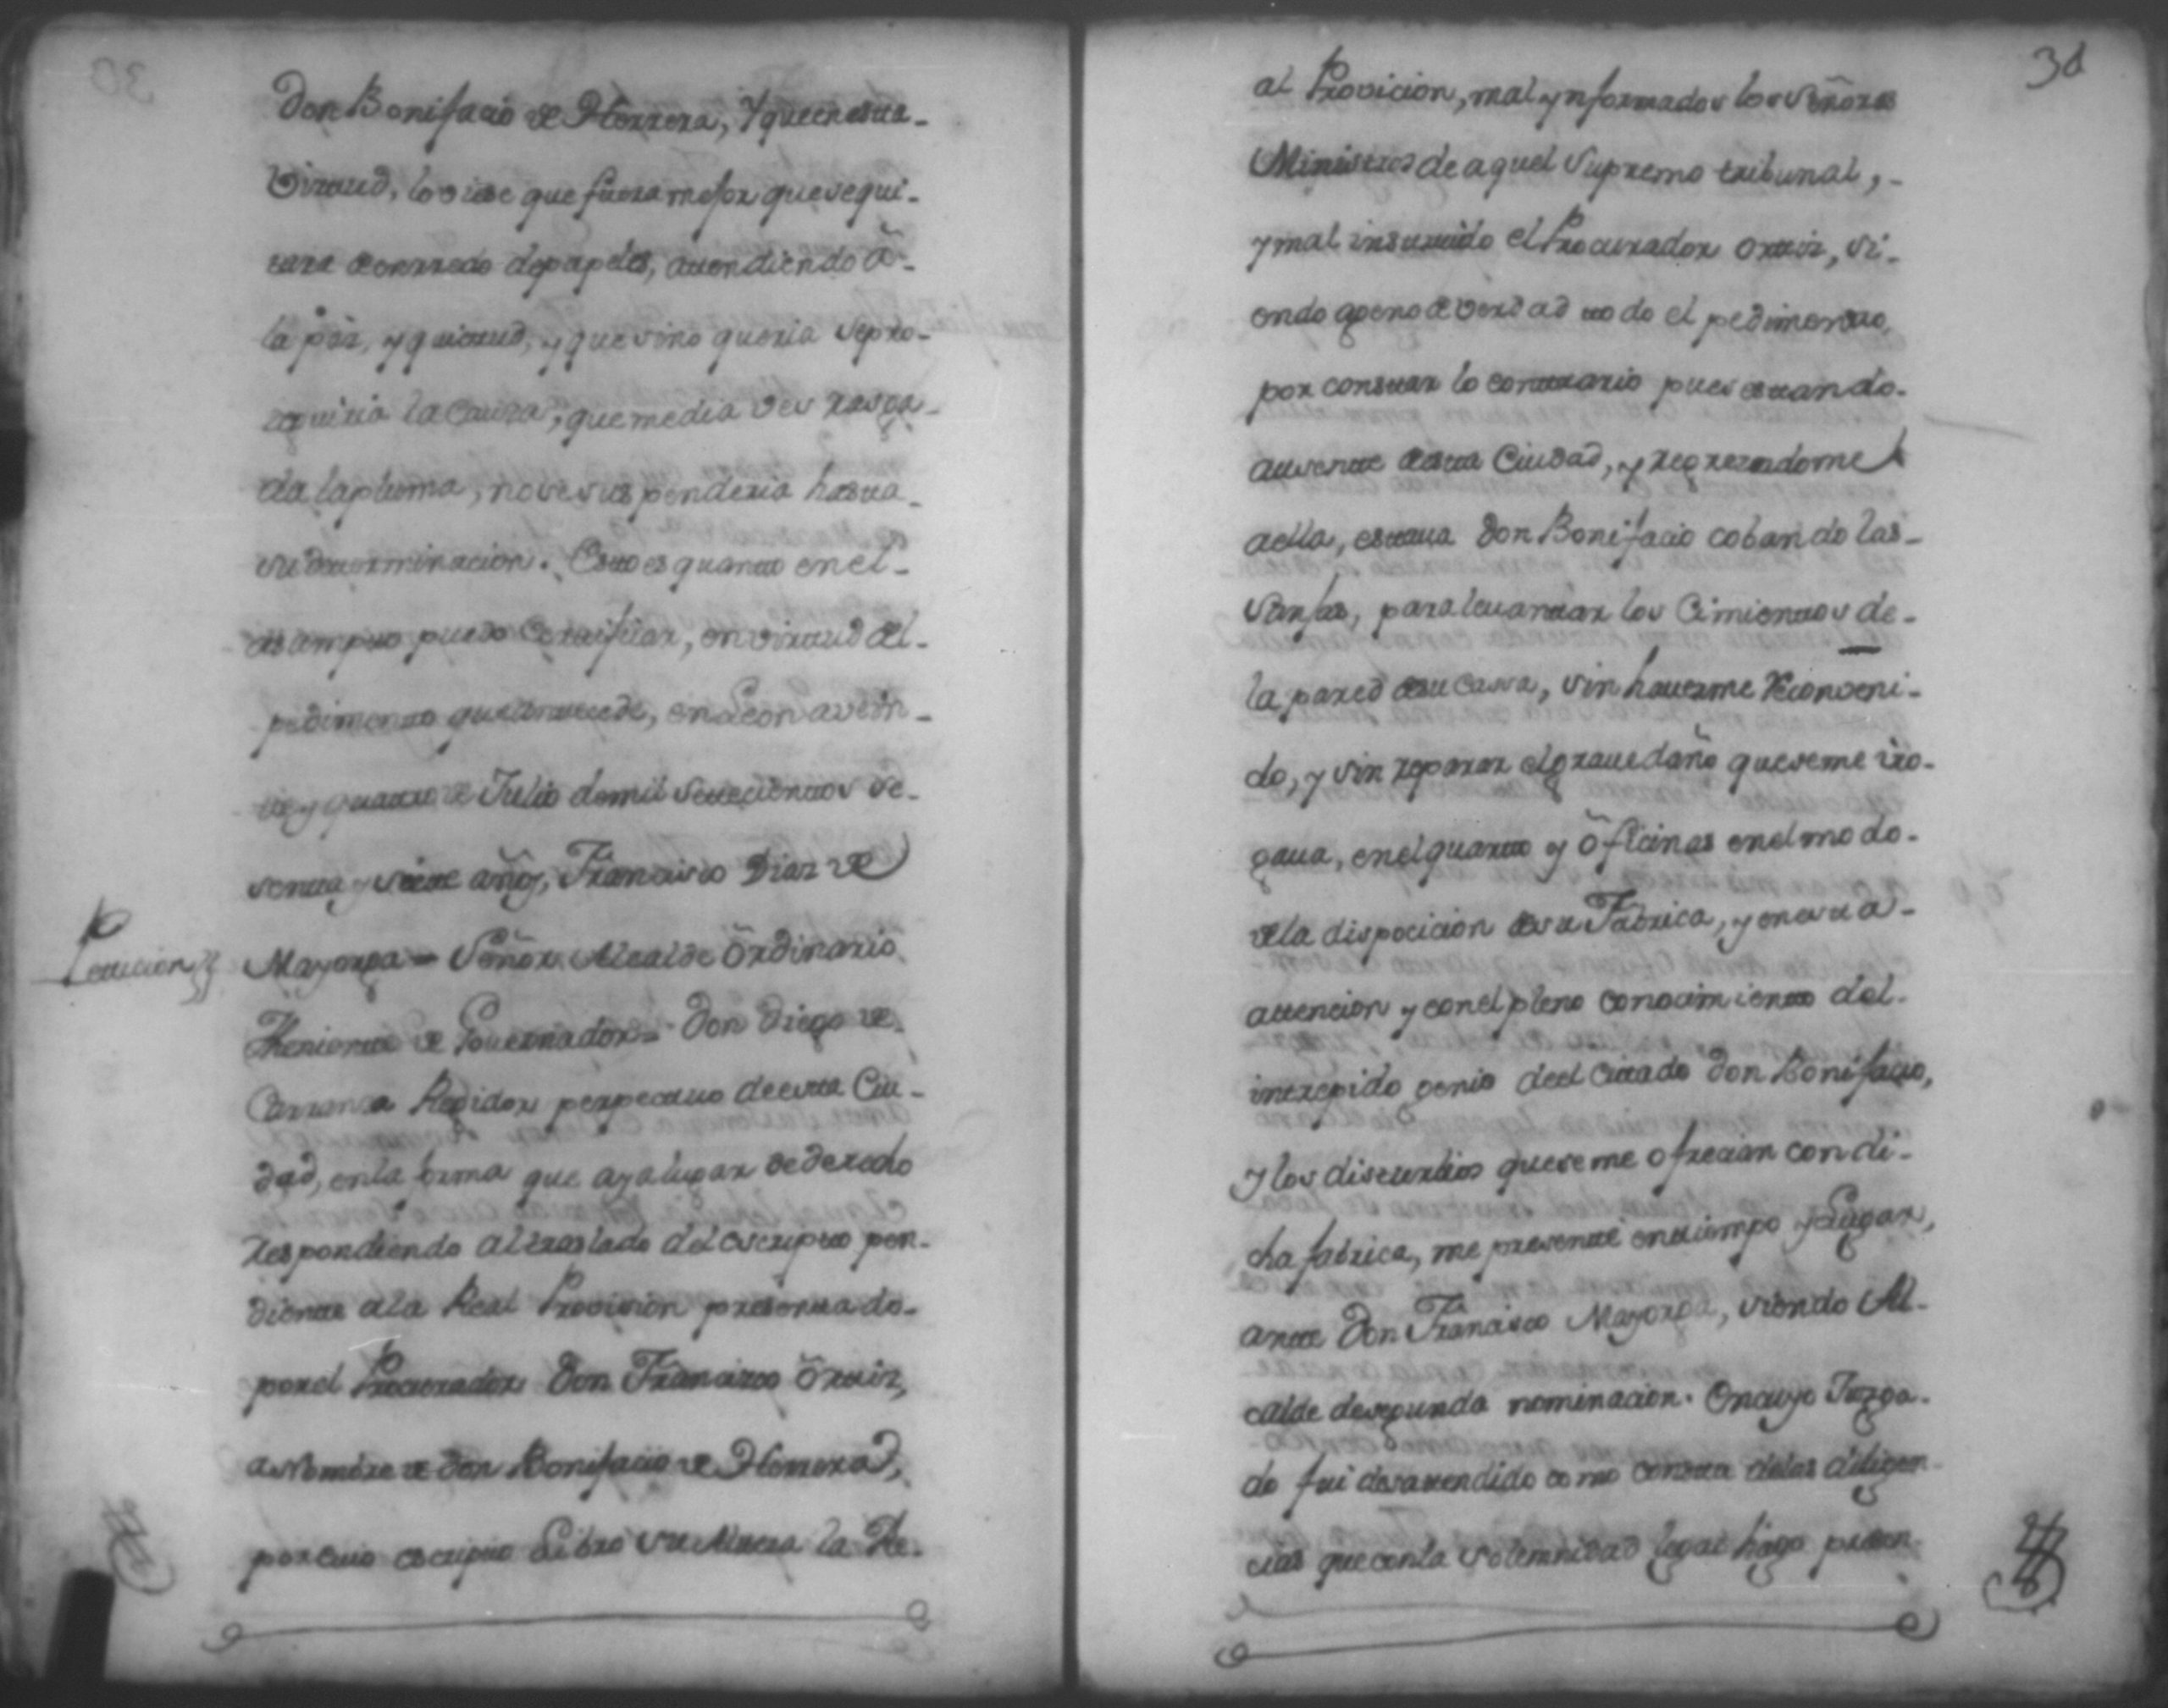 Don Bonifacio de Herrera, Y que en esta-
Virtud, los dixe que fuera mejor que se qui-
tara de enrredo de papeles, attendiendo â-
la páz, y quietud, y que sino queria se pro-
seguiria la Causa, que media ves rasga-
da la pluma, no se suspenderia hasta-
su determinacion. Esto es quanto en el-
asumpto puedo Certificar, en virtud del-
pedimento que antecede, en Leon a vein-
te y quattro de Julio de mil settecientos se-
senta y siete años, Francisco Diaz de
Petticion
Mayorga = Señor Alcalde ôrdinario
Theniente de Governador = Don Diego de
Carranza Regidor perpetuo de esta Ciu-
dad, en la forma que aya lugar de derecho
respondiendo al traslado del escripto pen-
diente a la Real Provision presentado-
por el Procurador Don Francisco ôrtiz,
a Nombre de don Bonifacio de Herrera,
por cuio escripto Libro su Alteza la Re-
31
al Provicion, mal ynformados los Señores
Ministros de aquel Supremo tribunal,-
y mal instruido el Procurador Ortiz, si-
endo ageno de verdad todo el pedimento,
por constar lo contrario pues estando-
ausente de esta Ciudad, y regrezandome
a ella, estaua Don Bonifacio cobando las-
Sanjas, para leuantar los Cimientos de-
la pared de su Cassa, sin hauerme Reconveni-
do, y sin reparar el graue daño que se me iro-
gaua, en el quarto y ôficinas en el modo-
de la disposicion de su Fabrica, y en esta-
attencion y con el pleno conocimiento del-
intrepido genio de el Cittado Don Bonifacio,
y los disturbios que se me ofrecian con di-
cha fabrica, me presentté en tiempo y Lugar,
ante Don Francisco Mayorga, siendo Al-
calde de segunda nominacion. En cuyo Juzga-
do fui desatendido como consta de las diligen-
cias que con la solemnidad legal hago presen-